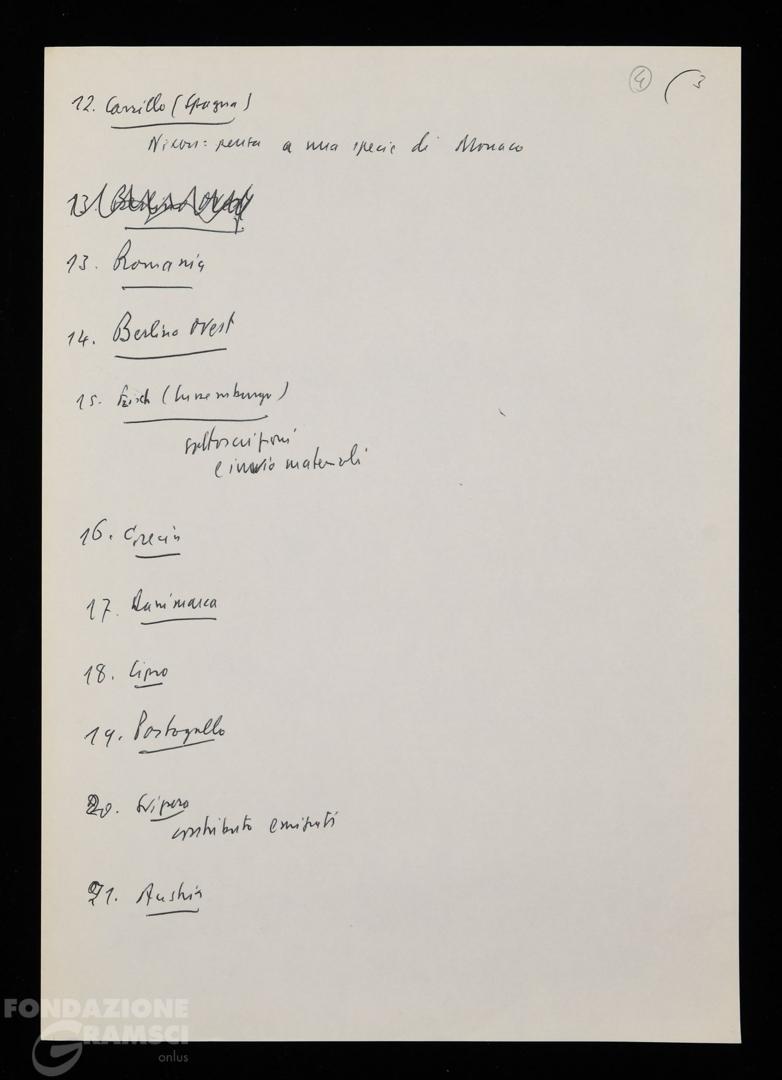 4 ( 3
12. Carrillo (Spagna)
Nixon: pensa a una specie di Monaco
13. Berlino Ovest
13. Romania
14. Berlino Ovest
15. (Lussemburgo)
sottoscrizioni
e invio materiali
16. Grecia
17. Danimarca
18. Cipro
19. Portogallo
20. Svizzera
contributo emigrati
21. Austria
FONDAZIONE
GRAMSCI
onlus